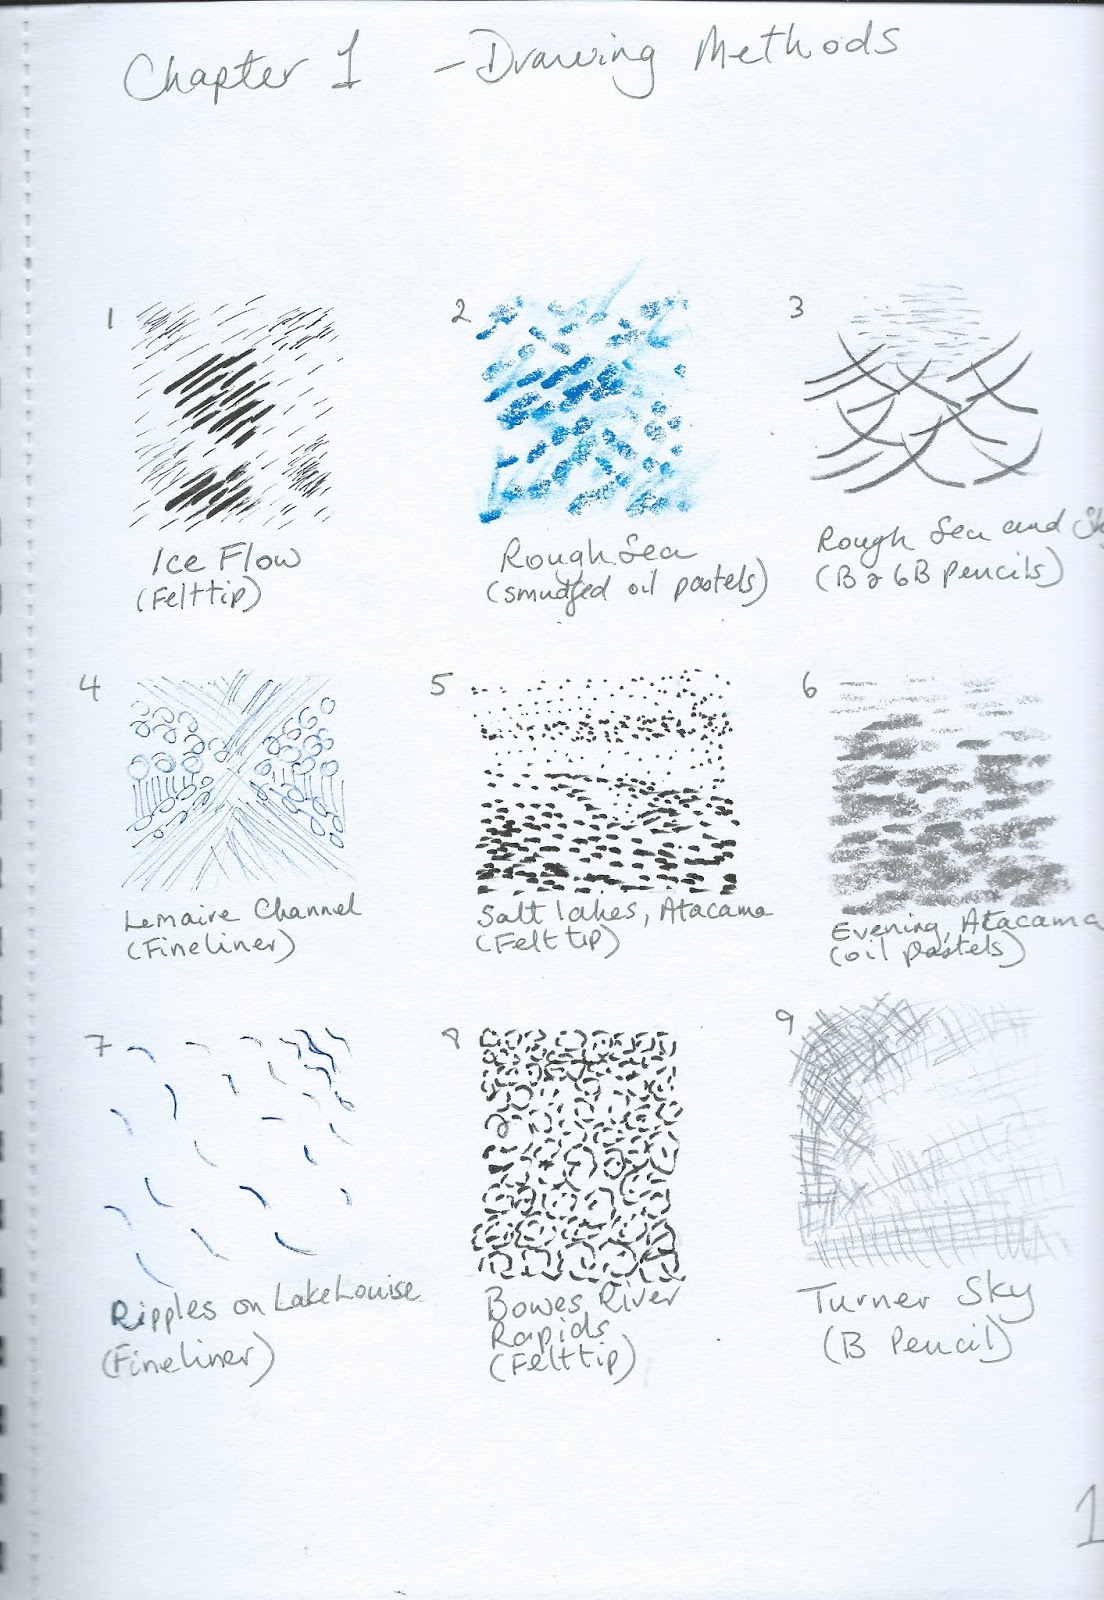 Chapter 1 - Drawing Methods
1
Ice Flow
(Felttip)
2
Rough Sea
(smudged oil pastels)
3
Rough Sea and Sk
(B & 6B Pencils)
4
Lemaire Channel
(Fineliner)
5
Salt lakes, Atacama
(Felt tip)
6
Evening, Atacama
(oil pastels)
7
Ripples on Lake Louise
(Fineliner)
8
Bowes River
Rapids
(Felttip)
9
Turner Sky
(B Pencil)
1